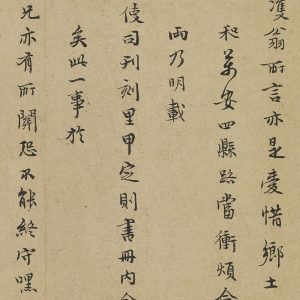 雙翁所言亦是愛惜鄉土
和萬安四縣路當衝煩命
両乃明載
使司刊刻里甲定則書冊内命
矣此一事於
兄亦有所關恐不能終守嘿